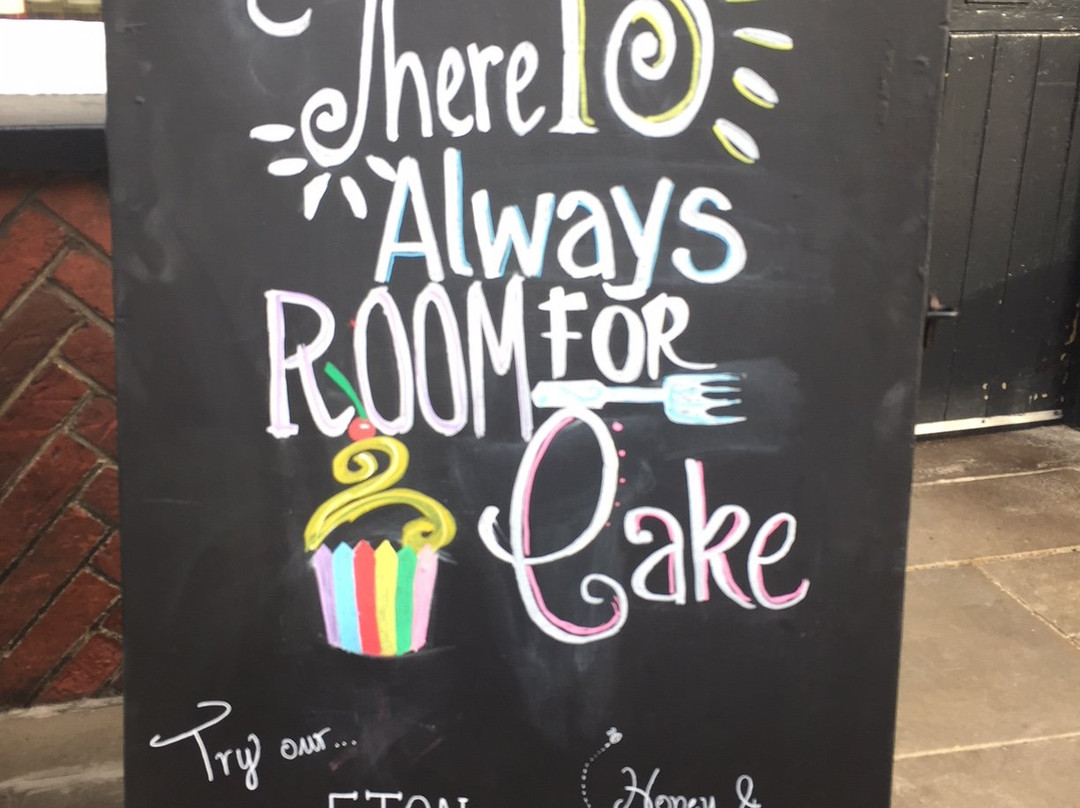 There IS
Always
ROOM FOR
Cake
Try our...
ETON
Honey &